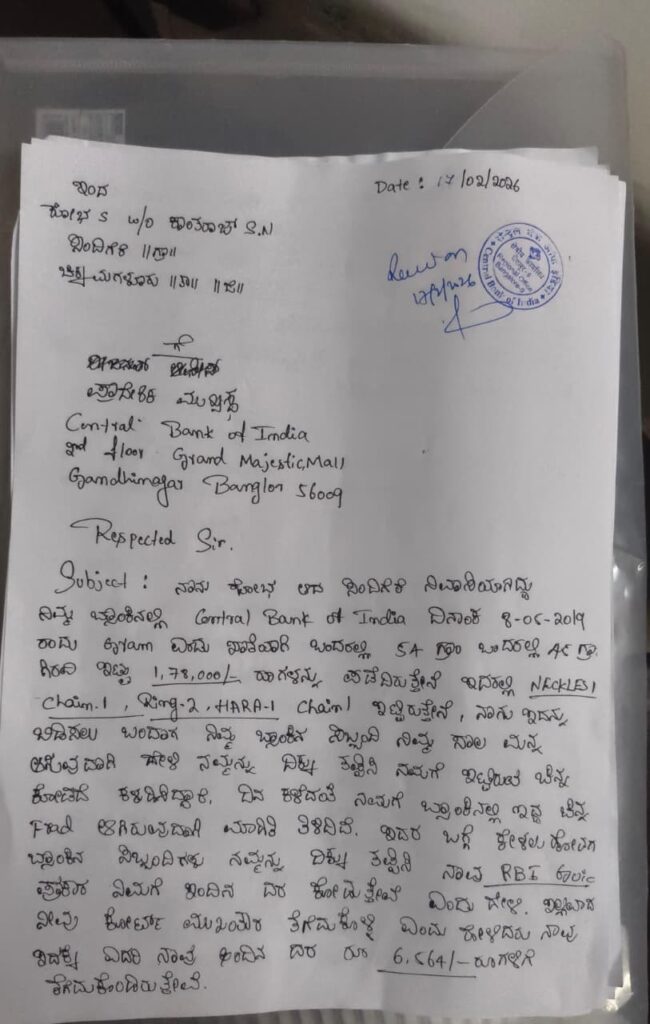 ಇಂದ
Date : 17/02/2026
ಶೋಭ S w/o ಕಾಂತರಾಜ್ S.N
ಹಿಂದಿಗೆರೆ ||ಗ್ರಾ||
ಚಿಕ್ಕಮಗಳೂರು ||ತಾ|| ||ಜಿ||
17/2/2026
Regional Office
Central Bank of India
ಗೆ
ಪ್ರಾದೇಶಿಕ ಮುಖ್ಯಸ್ಥ
Central Bank of India
2nd floor Grand Majestic, Mall
Gandhinagar Banglor 56009
Respected Sir.
Subject : ನಾನು ಶೋಭ ಆದ ಹಿಂದಿಗೆರೆ ನಿವಾಸಿಯಾಗಿದ್ದು
ನಿಮ್ಮ ಬ್ಯಾಂಕಿನಲ್ಲಿ Central Bank of India ದಿನಾಂಕ 2019
ರಂದು ಒಂದರಲ್ಲಿ 54 ಗ್ರಾಂ ಒಂದರಲ್ಲಿ ಗ್ರಾ
ಗಿರವಿ ಇಟ್ಟು 1,78,000/- ರೂಗಳನ್ನು ಪಡೆದಿರುತ್ತೇನೆ ಇದರಲ್ಲಿ NECKLES 1
Chain-1, Ring-2, HARA-1 Chain 1 ಇಟ್ಟಿರುತ್ತೇನೆ, ನಾನು ಇದನ್ನು
ಬಿಡಿಸಲು ಬಂದಾಗ ನಿಮ್ಮ ಬ್ಯಾಂಕಿನ ಸಿಬ್ಬಂದಿ ನಿಮ್ಮ ಸಾಲ ಮನ್ನ
ಆಗಿರುವುದಾಗಿ ಹೇಳಿ ನಮ್ಮನ್ನು ದಿಕ್ಕು ತಪ್ಪಿಸಿ ನಮಗೆ ಇಟ್ಟಿರುವ ಚಿನ್ನ
ಕೊಡದೆ ಕಳುಹಿಸಿದ್ದಾರೆ. ದಿನ ಕಳೆದಂತೆ ನಮಗೆ ಬ್ಯಾಂಕಿನಲ್ಲಿ ಇದ್ದ ಚಿನ್ನ
Frad ಆಗಿರುವುದಾಗಿ ಮಾಹಿತಿ ತಿಳಿದಿದೆ. ಇದರ ಬಗ್ಗೆ ಕೇಳಲು ಹೋದಾಗ
ಬ್ಯಾಂಕಿನ ಸಿಬ್ಬಂದಿಗಳು ನಮ್ಮನ್ನು ದಿಕ್ಕು ತಪ್ಪಿಸಿ ನಾವು RBI
ಪ್ರಕಾರ ನಿಮಗೆ ಹಿಂದಿನ ದರ ಕೊಡುತ್ತೇವೆ ಎಂದು ಹೇಳಿ. ಇಲ್ಲವಾದ
ನೀವು ಕೋರ್ಟ್ ಮುಖಾಂತರ ತೆಗೆದುಕೊಳ್ಳಿ ಎಂದು ಹೇಳಿದರು ನಾವು
ಇದಕ್ಕೆ ಹೆದರಿ ನಾವು ಹಿಂದಿನ ದರ ರೂ 6,564/- ರೂಗಳಿಗೆ
ತೆಗೆದುಕೊಂಡಿರುತ್ತೇವೆ.